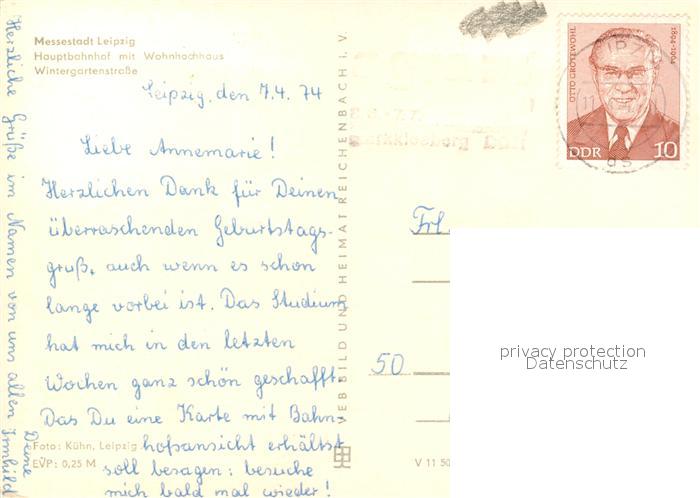 Messestadt Leipzig
Hauptbahnhof mit Wohnhochhaus
Wintergartenstraße
Leipzig, den 7.4. 74
Liebe Annemarie!
Herzlichen Dank für Deinen
überraschenden Geburtstags-
gruß, auch wenn es schon
lange vorbei ist. Das Studium
hat mich in den letzten
Wochen ganz schön geschafft.
Das Du eine Karte mit Bahn-
hofsansicht erhältst
soll besagen: besuche
mich bald mal wieder!
Herzliche Grüße im Namen von uns allen
Deine
Irmhild
Foto: Kühn, Leipzig
EVP: 0,25 M
VEB BILD UND HEIMAT REICHENBACH I. V.
V 11 50
OTTO GROTEWOHL
1894-1964
DDR 10
LEIPZIG
Markkleeberg DDR
Frl.
50
privacy protection
Datenschutz